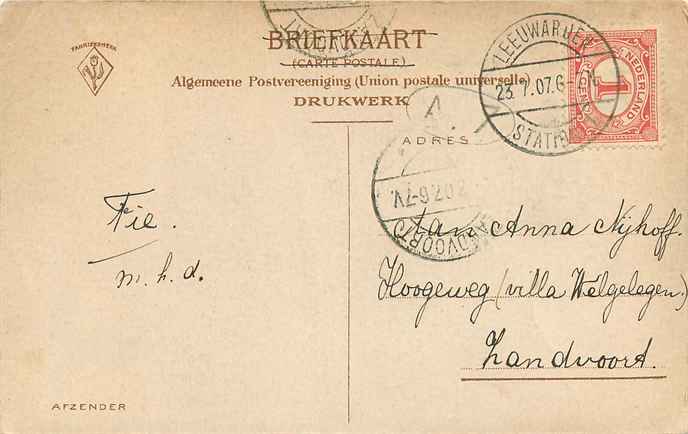 FABRIEKSMERK
BRIEFKAART
(CARTE POSTALE)
Algemeene Postvereeniging (Union postale universelle)
DRUKWERK
LEEUWARDEN
23.7.07.6-
STATION
NEDERLAND
1
CENT
A.
ADRES
ZANDVOORT
Fie.
m.h.d.
Aan Anna Nijhoff.
Hoogeweg (villa Welgelegen.)
Zandvoort.
AFZENDER